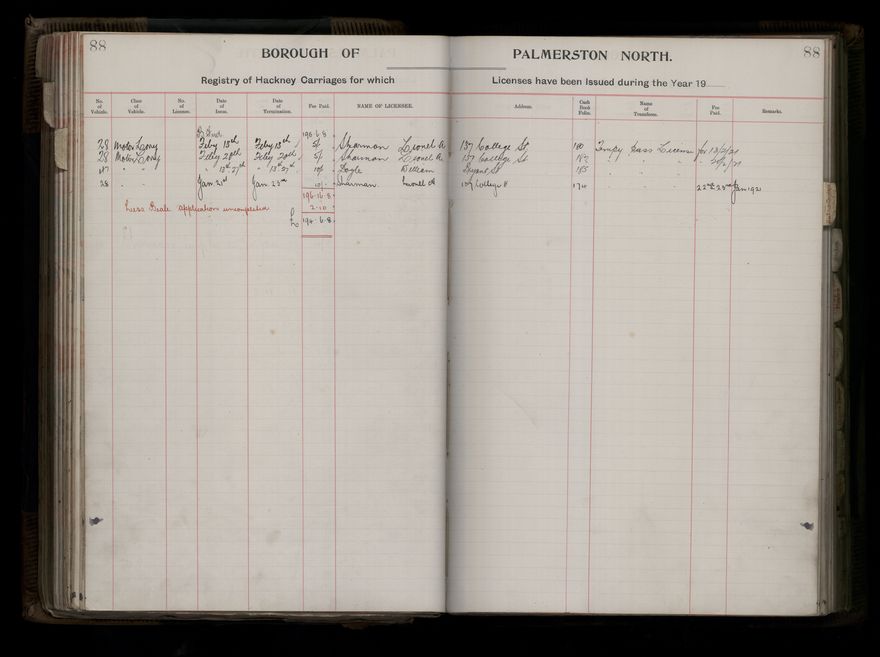 88
BOROUGH OF PALMERSTON NORTH.
88
Registry of Hackney Carriages for which Licenses have been Issued during the Year 19
No. of Vehicle. Class of Vehicle. No. of License. Date of Issue. Date of Termination. Fee Paid. NAME OF LICENSEE. Address. Cash Book Folio. Name of Transferee. Fee Paid. Remarks.
195-6-8
28 Motor Lorry Feby 13th Feby 13th 5/- Sharman Lionel A. 137 College St. 180 Tempy Pass License for 13/2/21
28 Motor Lorry Feby 20th Feby 20th 5/- Sharman Lionel A. 137 College St 182 " " " 20/2/21
" " " 13th 27th " 13th 27th 10/- William 185 " " "
28 " " Jan 23rd Jan 23rd 10/- Sharman Lionel A College St 174 22nd 23rd Jan 1921
196-16-8
Less application uncompleted 2-10-
£ 194-6-8